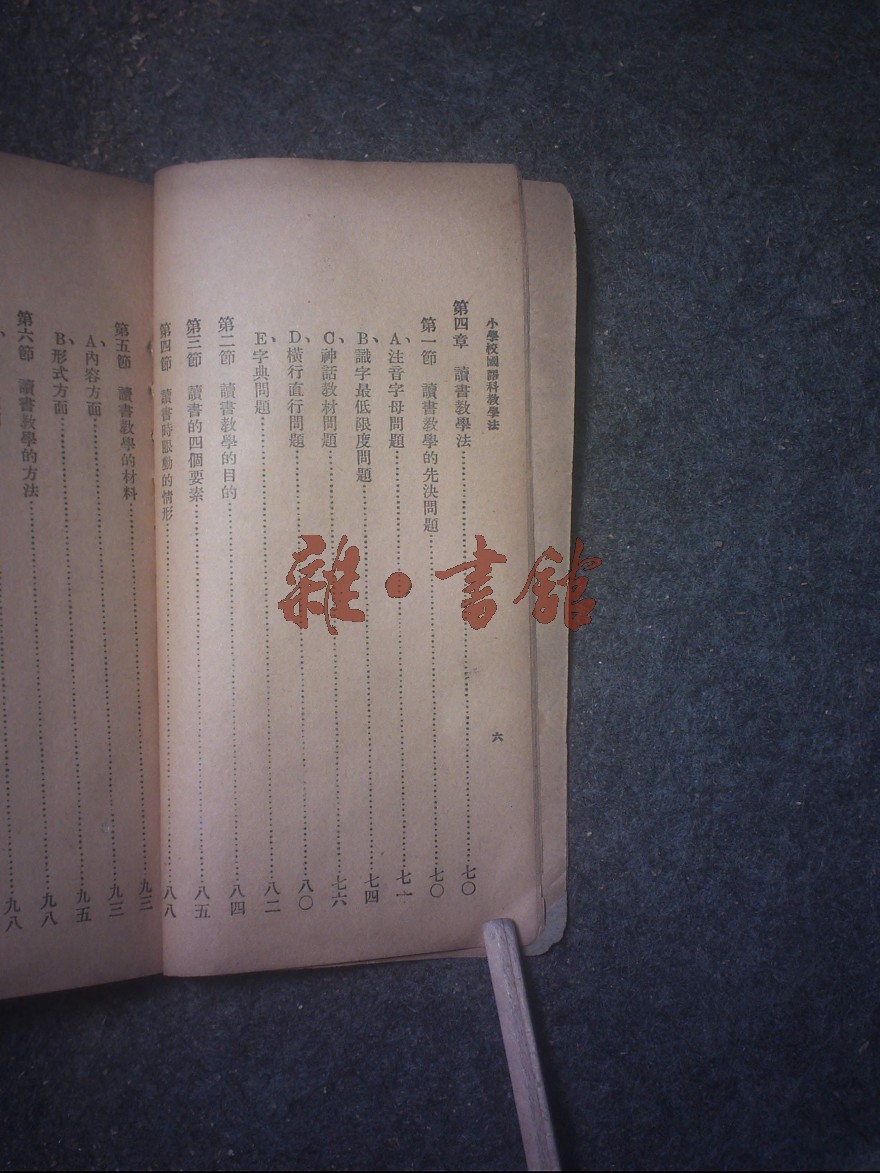 小學校國語科教學法
六
第四章 讀書教學法……七〇
第一節 讀書教學的先決問題……七〇
A、注音字母問題……七一
B、識字最低限度問題……七四
C、神話教材問題……七六
D、橫行直行問題……八〇
E、字典問題……八二
第二節 讀書教學的目的……八四
第三節 讀書的四個要素……八五
第四節 讀書時眼動的情形……八八
第五節 讀書教學的材料……九三
A、內容方面……九三
B、形式方面……九五
第六節 讀書教學的方法……九八
九八
雜·書館